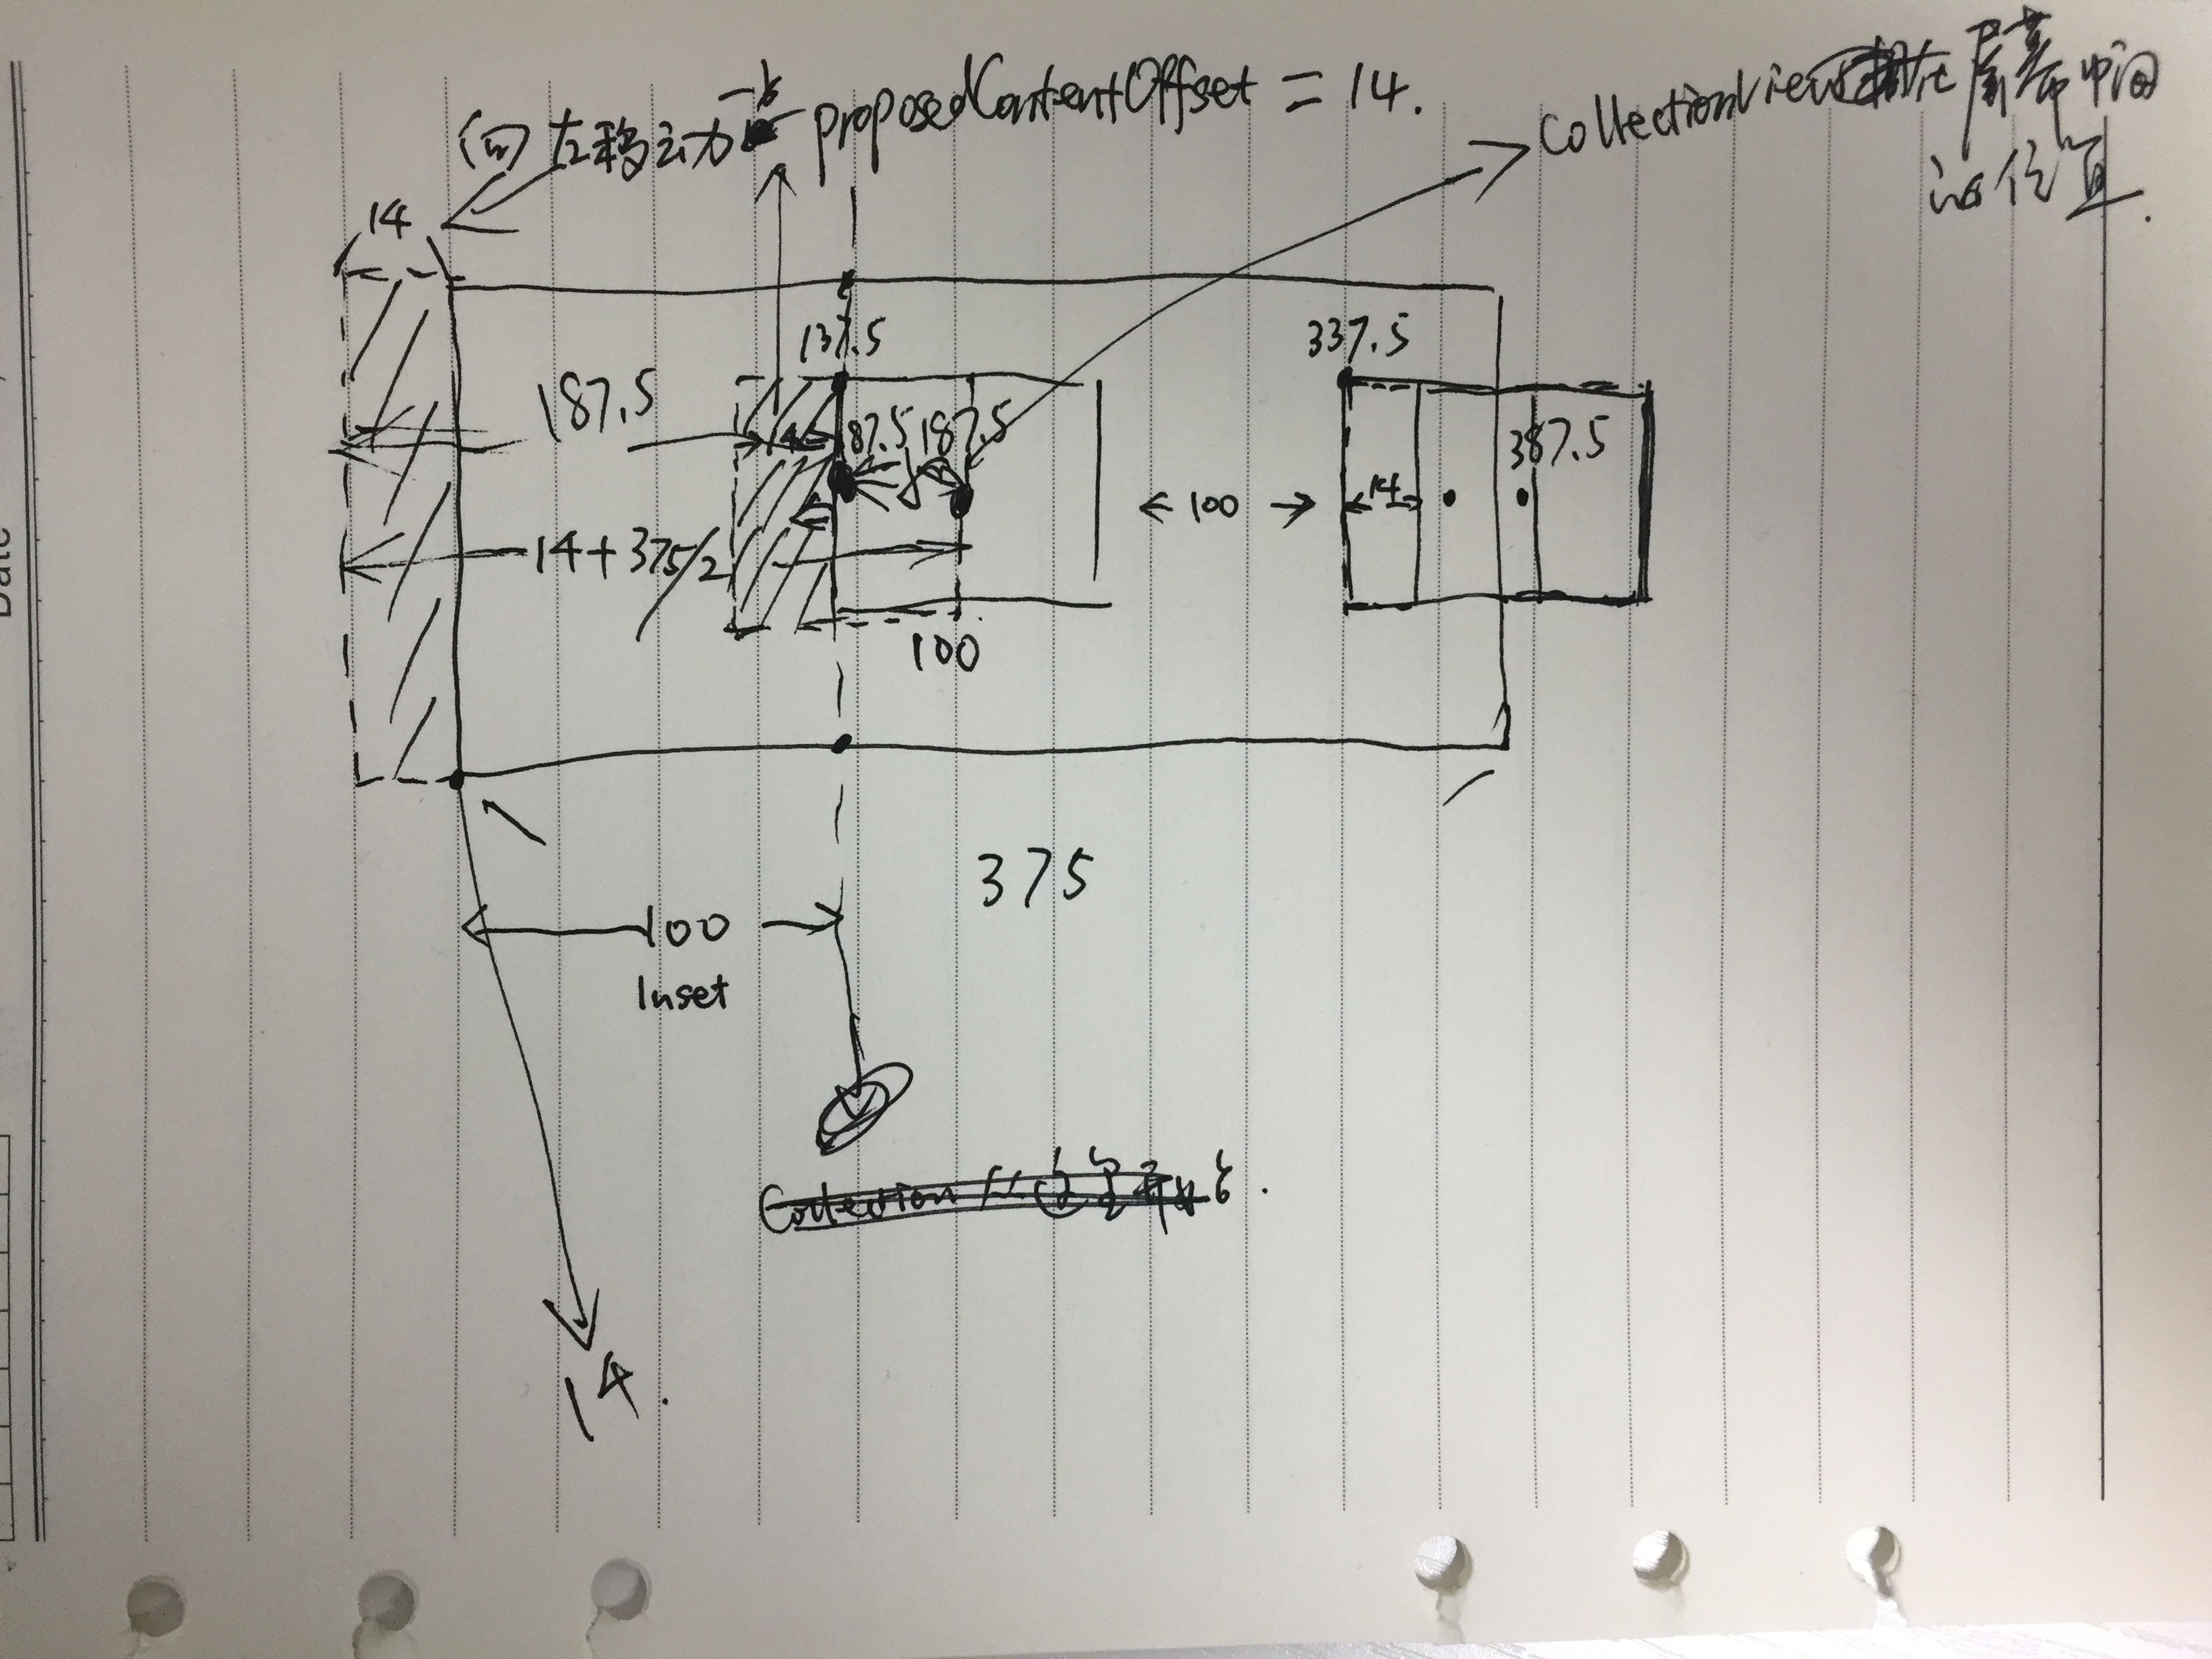 向左移动力 proposedContentOffset = 14.
CollectionView 在屏幕中间
的位置.
14
137.5
337.5
187.5
14
187.5
187.5
387.5
100
14
14+375/2
100
375
100
Inset
Collection
14.